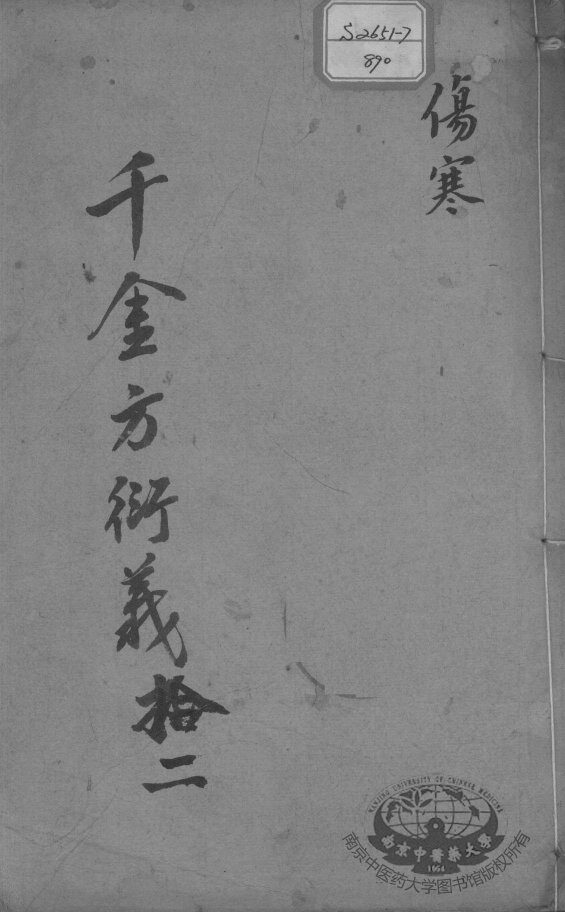 S2651-7
890
傷寒
千金方衍義拾二
NANJING UNIVERSITY OF CHINESE MEDICINE
南京中醫藥大學
1954
南京中医药大学图书馆版权所有